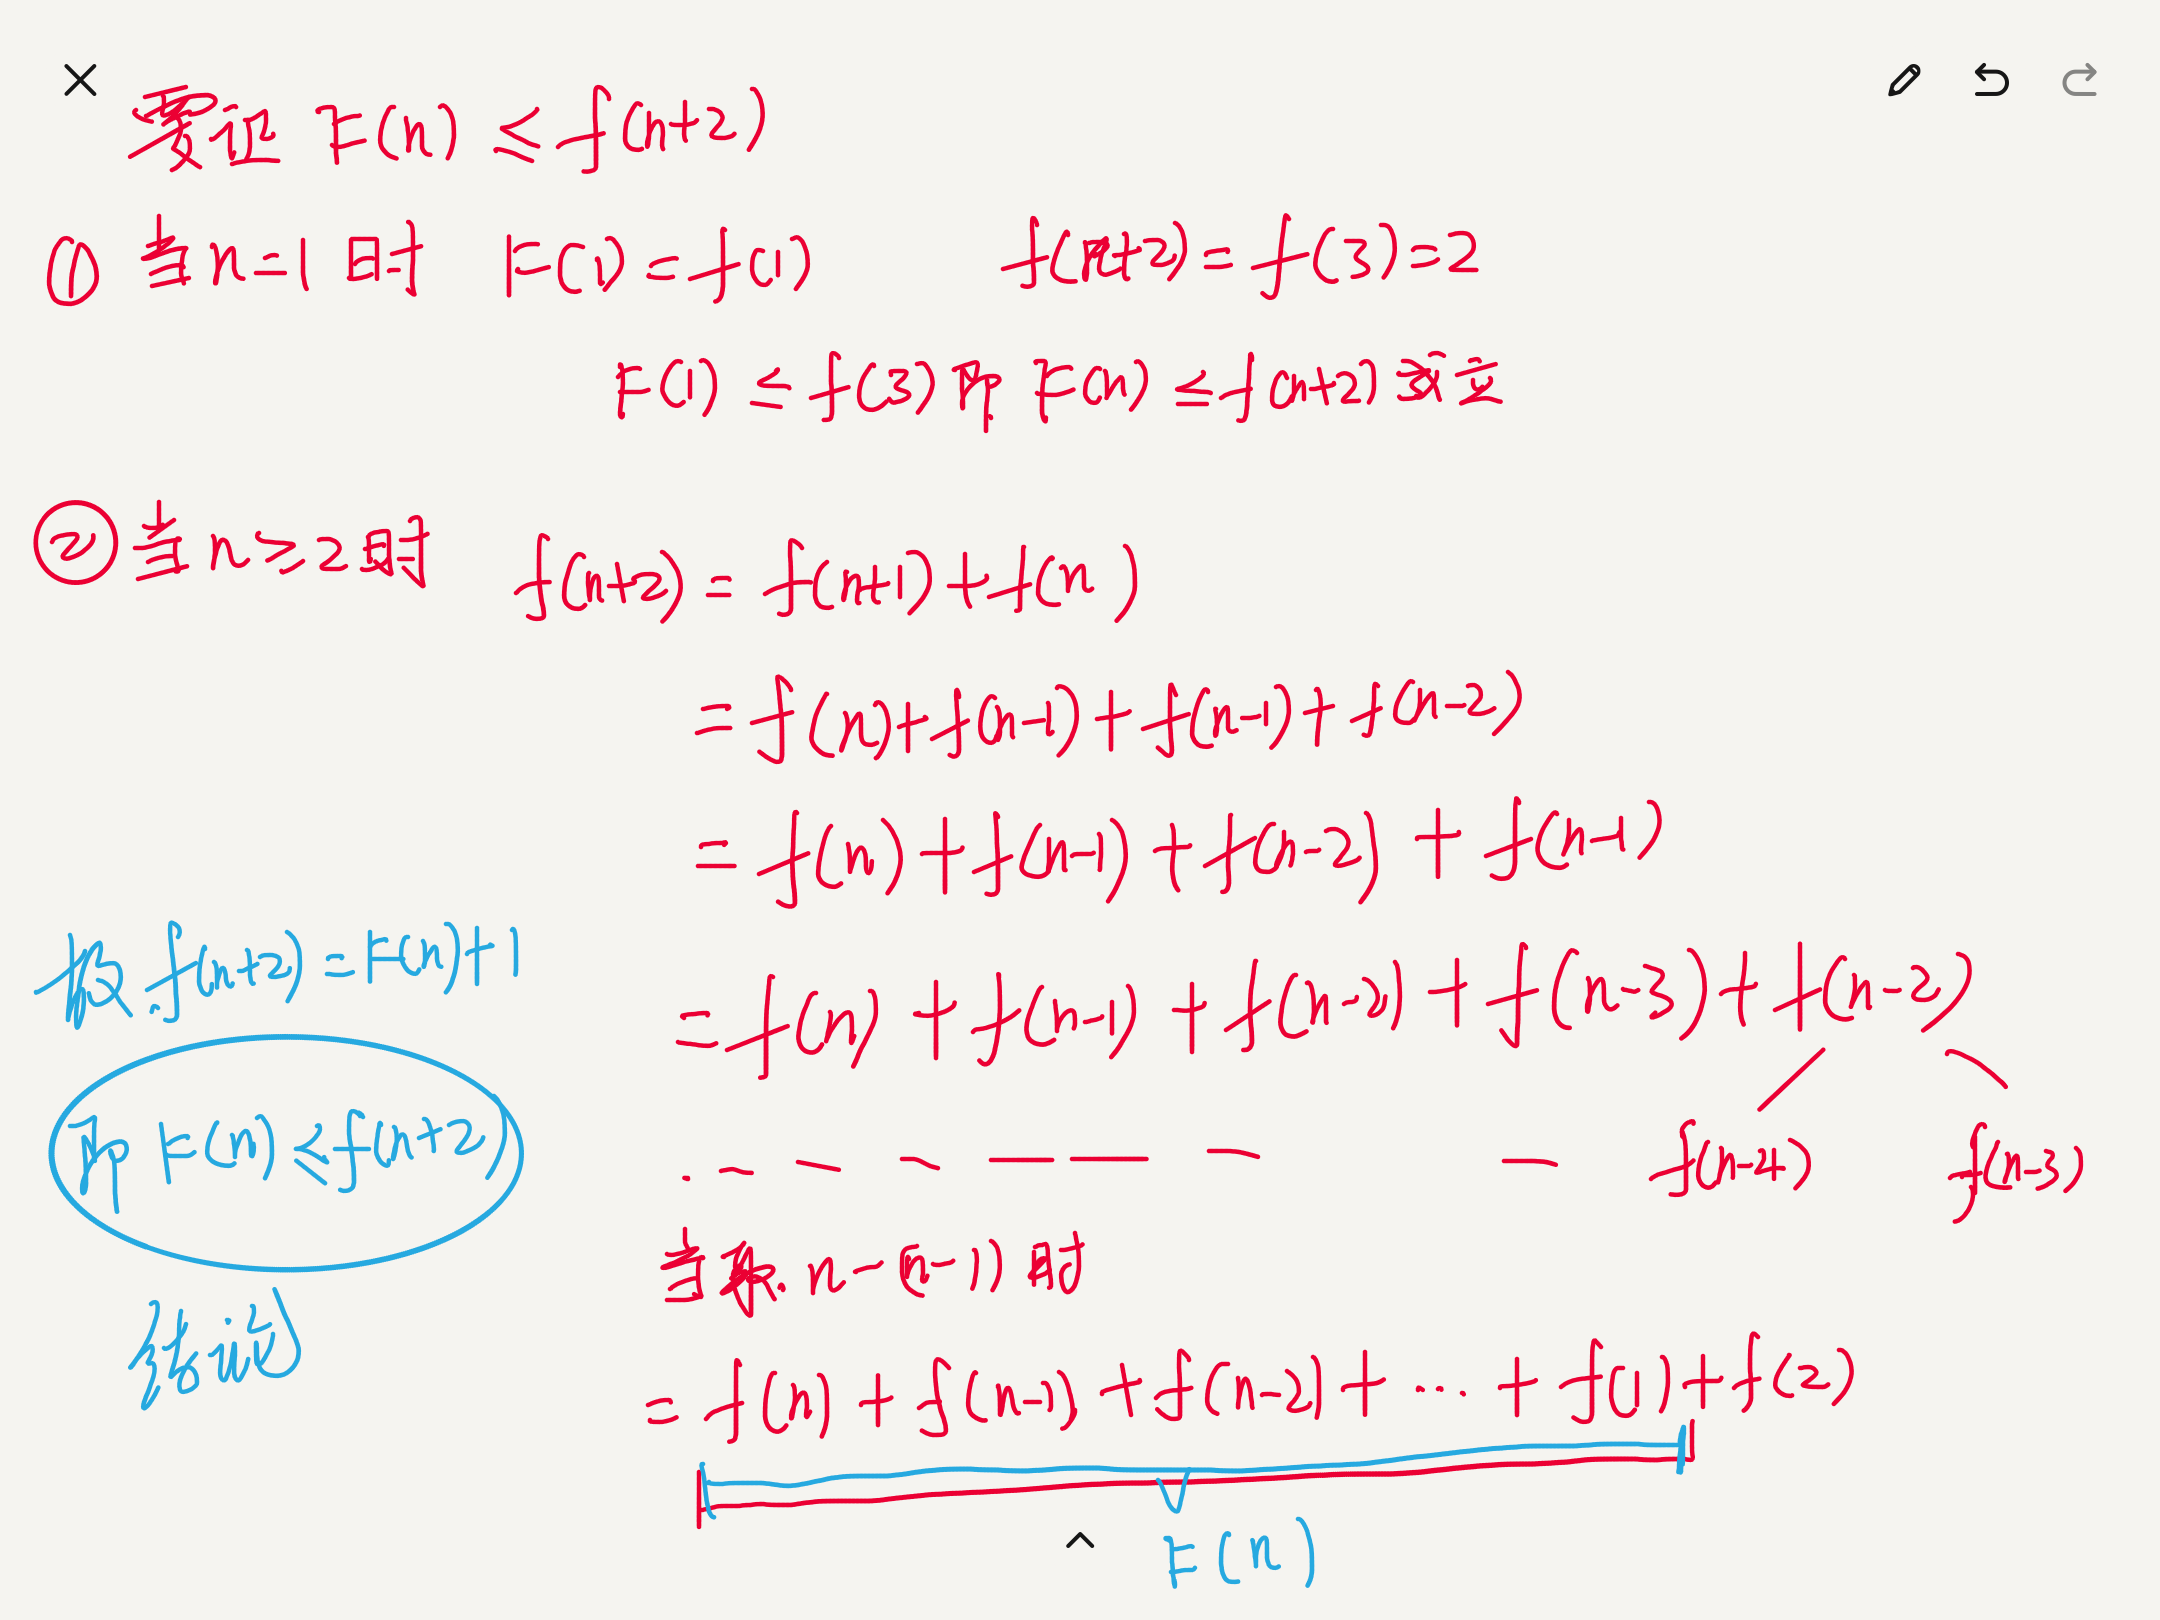 要证 F(n) ≤ f(n+2)
① 当 n=1 时 F(1)=f(1) f(n+2)=f(3)=2
F(1) ≤ f(3) 即 F(n) ≤ f(n+2) 成立
② 当 n≥2 时 f(n+2) = f(n+1)+f(n)
= f(n)+f(n-1)+f(n-1)+f(n-2)
= f(n)+f(n-1)+f(n-2)+f(n-1)
= f(n)+f(n-1)+f(n-2)+f(n-3)+f(n-2)
f(n-4) f(n-3)
当 n-(n-1) 时
= f(n)+f(n-1)+f(n-2)+…+f(1)+f(2)
F(n)
故 f(n+2)=F(n)+1
即 F(n)≤f(n+2)
结论